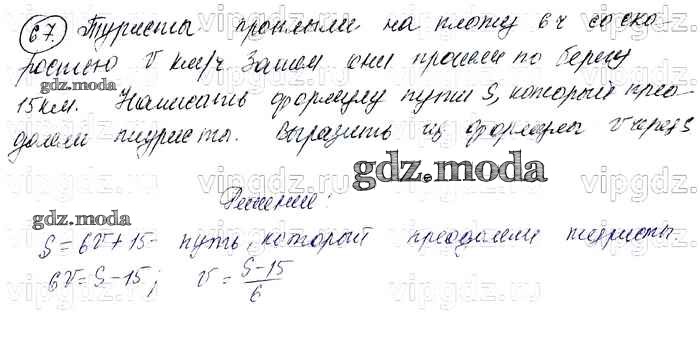 67. Туристы проплыли на плоту 6 ч со ско-
ростью v км/ч. Затем они прошли по берегу
gdz.moda
15 км. Написать формулу пути S, который прео-
долели туристы. Выразить из формулы v через S
gdz.moda
Решение:
gdz.moda
S = 6v + 15 - путь, который преодолели туристы
6v = S - 15; v = \frac{S-15}{6}
vipgdz.ru